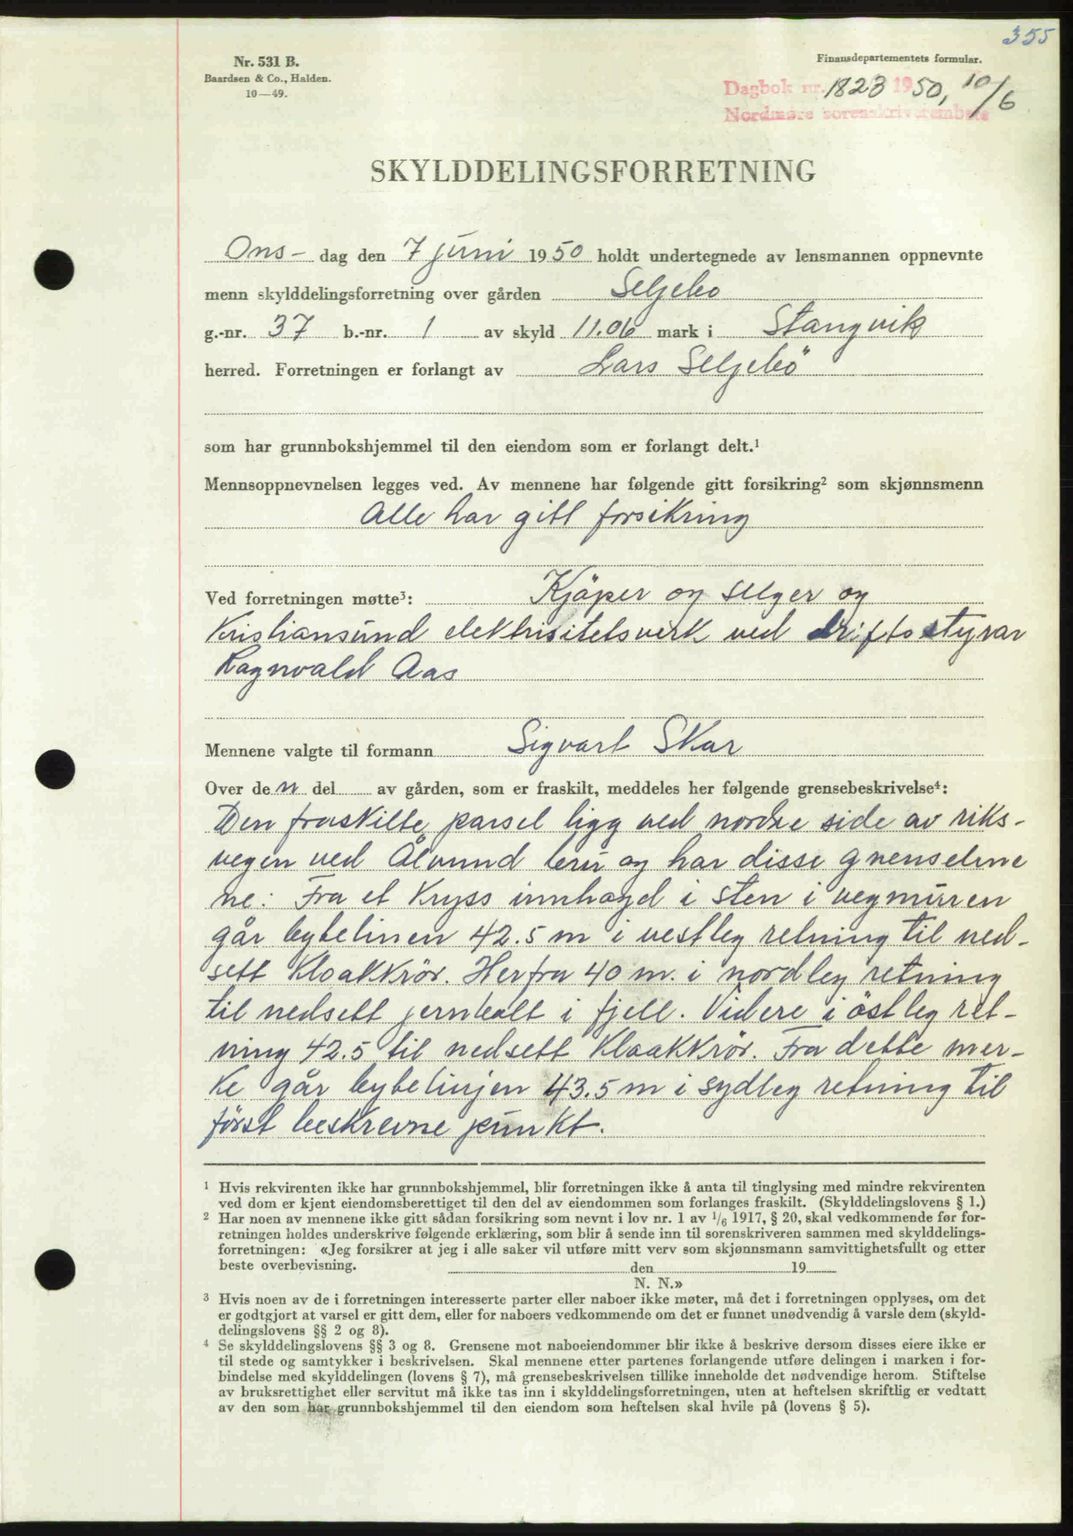 355
Nr. 531 B.
Baardsen & Co., Halden.
10—49.
Finansdepartementets formular.
Dagbok nr. 1823 1950, 10/6
Nordmøre sorenskriverembete
SKYLDDELINGSFORRETNING
Ons- dag den 7 juni 1950 holdt undertegnede av lensmannen oppnevnte
menn skylddelingsforretning over gården Seljebo
g.-nr. 37 b.-nr. 1 av skyld 11.06 mark i Stangvik
herred. Forretningen er forlangt av Lars Seljebö
som har grunnbokshjemmel til den eiendom som er forlangt delt.¹
Mennsoppnevnelsen legges ved. Av mennene har følgende gitt forsikring² som skjønnsmenn
Alle har gitt forsikring
Ved forretningen møtte³: Kjöper og selger og
Kristiansund elektrisitetsverk ved driftsstyrar
Ragnvald Aas
Mennene valgte til formann Sigvart Skar
Over den del av gården, som er fraskilt, meddeles her følgende grensebeskrivelse⁴:
Den fraskilte parsel ligg ved nordre side av riks-
vegen ved Ålvund bru og har disse grenseline
ne: Fra et kryss innhogd i sten i vegmuren
går bytelinen 42.5 m i vestleg retning til ned-
sett kloakkrör. Herfra 40 m. i nordleg retning
til nedsett jernbolt i fjell. Videre i östleg ret-
ning 42.5 til nedsett kloakkrör. Fra dette mer-
ke går bytelinjen 43.5 m i sydleg retning til
först beskrevne punkt.
¹ Hvis rekvirenten ikke har grunnbokshjemmel, blir forretningen ikke å anta til tinglysing med mindre rekvirenten
ved dom er kjent eiendomsberettiget til den del av eiendommen som forlanges fraskilt. (Skylddelingslovens § 1.)
² Har noen av mennene ikke gitt sådan forsikring som nevnt i lov nr. 1 av 1/6 1917, § 20, skal vedkommende før for-
retningen holdes underskrive følgende erklæring, som blir å sende inn til sorenskriveren sammen med skylddelings-
forretningen: «Jeg forsikrer at jeg i alle saker vil utføre mitt verv som skjønnsmann samvittighetsfullt og etter
beste overbevisning. den 19
N. N.»
³ Hvis noen av de i forretningen interesserte parter eller naboer ikke møter, må det i forretningen opplyses, om det
er godtgjort at varsel er gitt dem, eller for naboers vedkommende om det er funnet unødvendig å varsle dem (skyld-
delingslovens §§ 2 og 8).
⁴ Se skylddelingslovens §§ 3 og 8. Grensene mot naboeiendommer blir ikke å beskrive dersom disses eiere ikke er
til stede og samtykker i beskrivelsen. Skal mennene etter partenes forlangende utføre delingen i marken i for-
bindelse med skylddelingen (lovens § 7), må grensebeskrivelsen tillike inneholde det nødvendige herom. Stiftelse
av bruksrettighet eller servitut må ikke tas inn i skylddelingsforretningen, uten at heftelsen skriftlig er vedtatt
av den som har grunnbokshjemmel til den eiendom som heftelsen skal hvile på (lovens § 5).